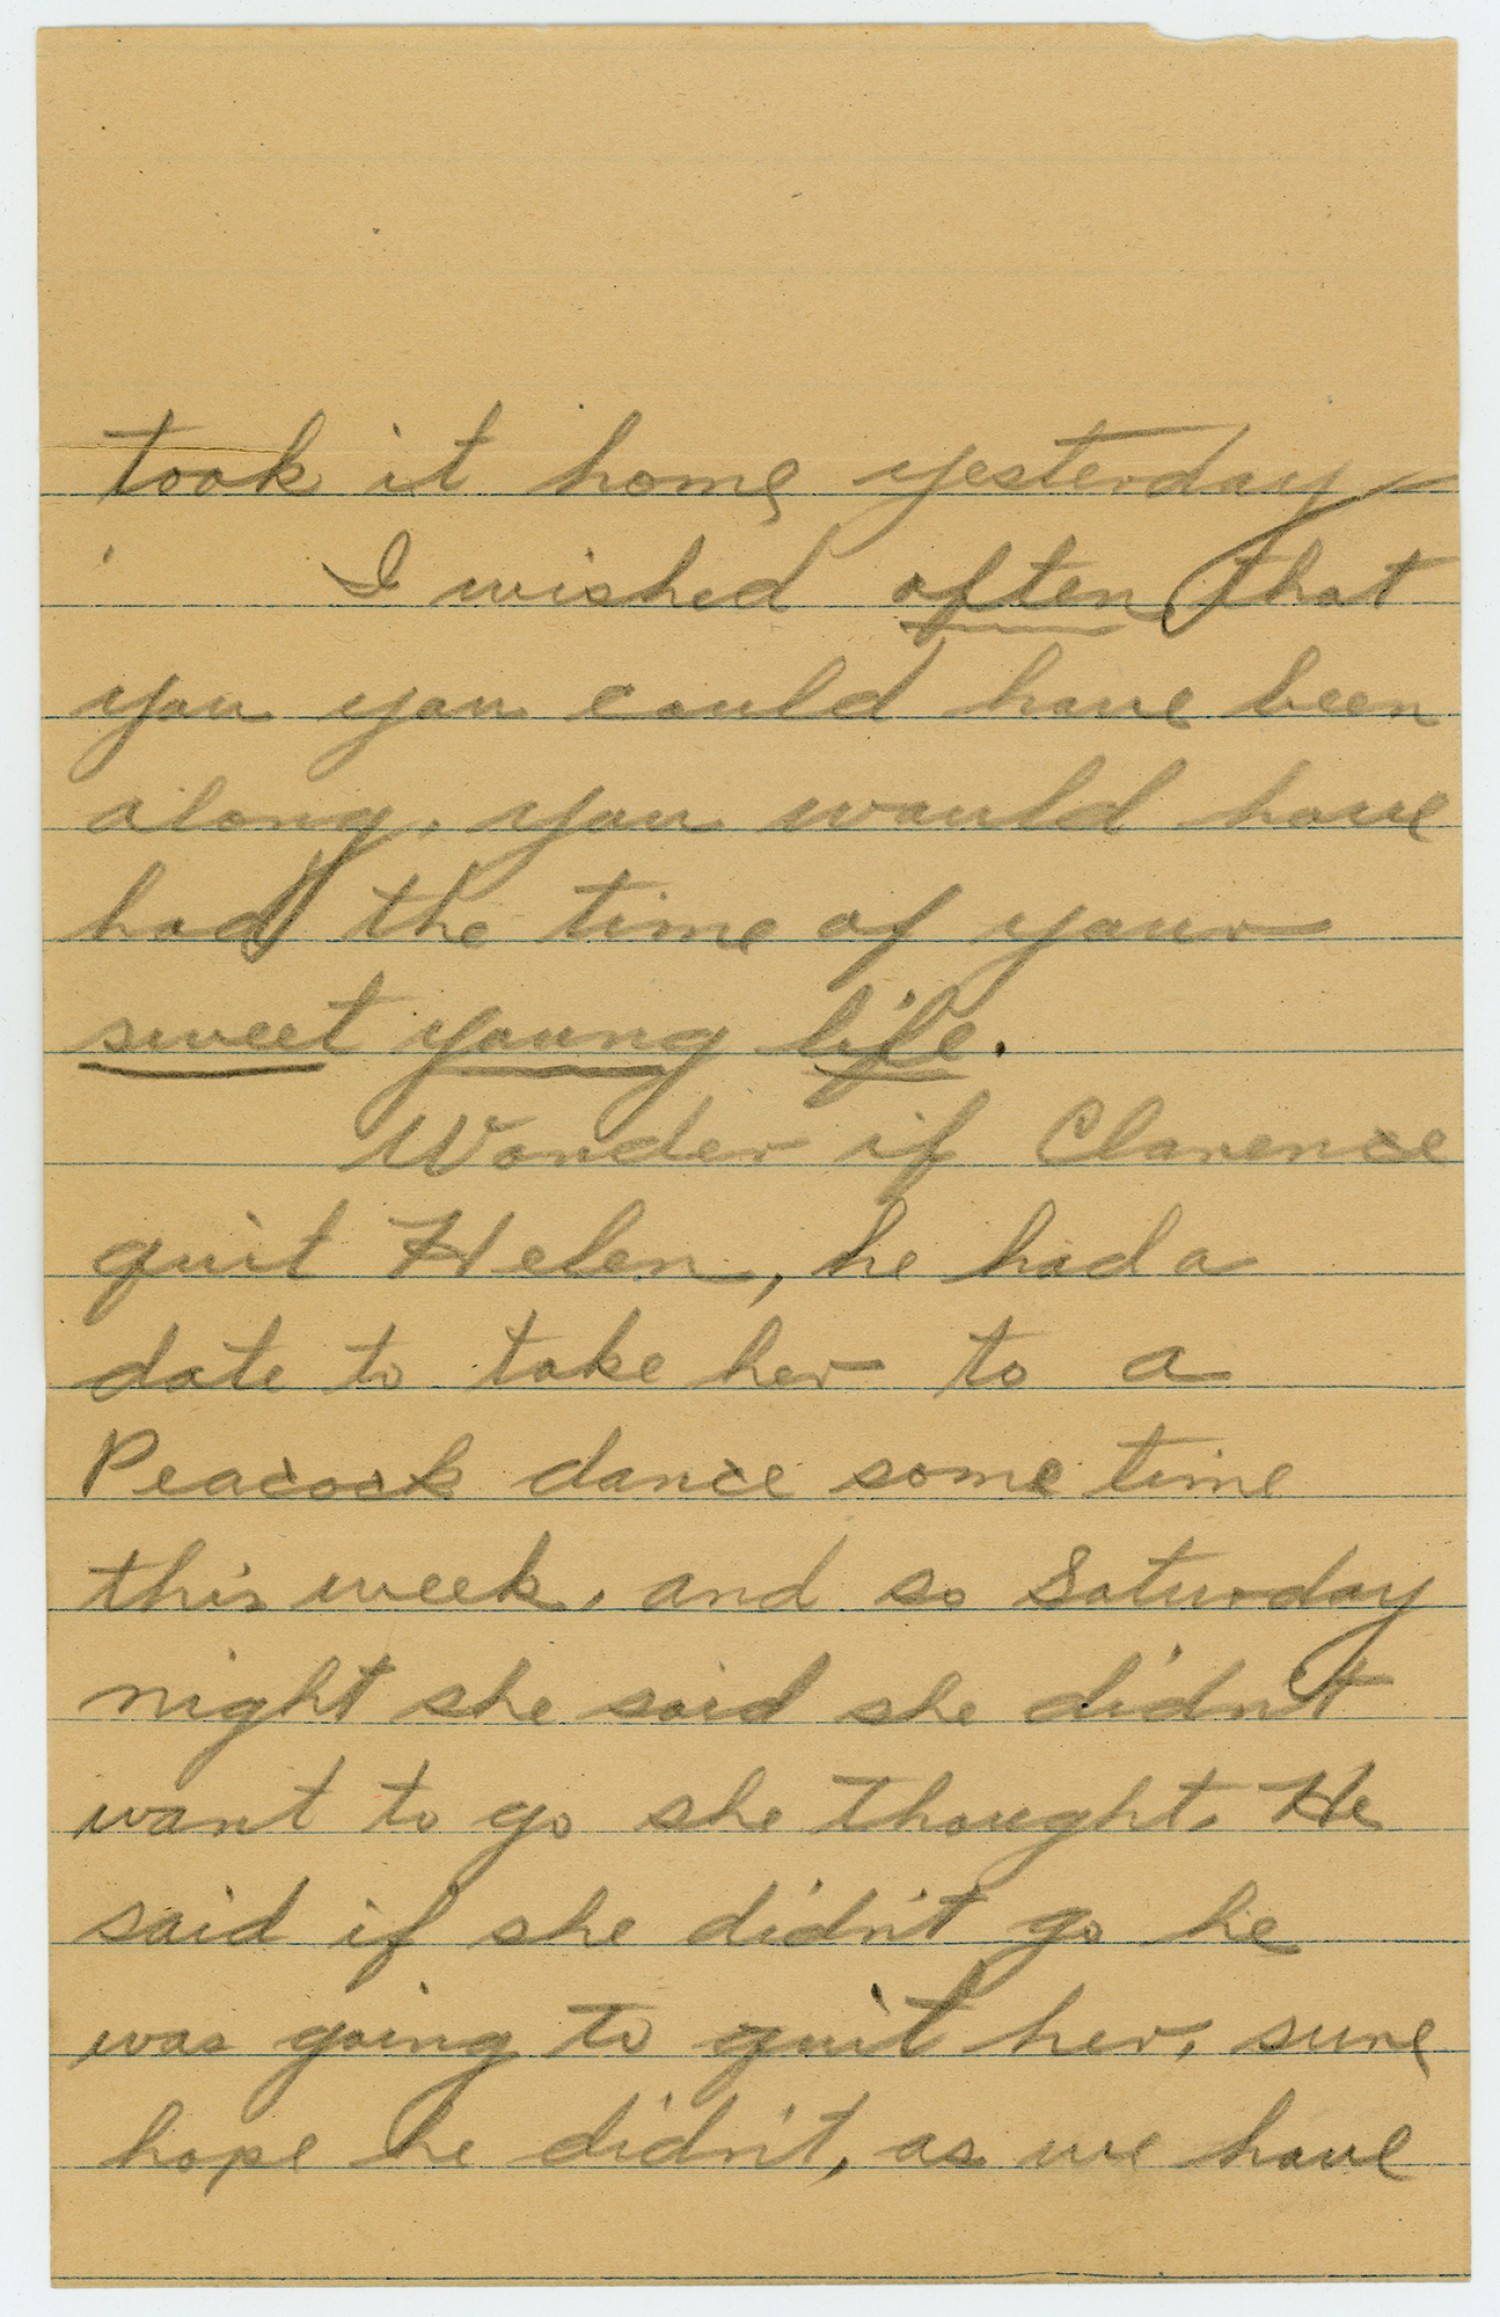 took it home yesterday
I wished often that
you you could have been
along, you would have
had the time of your
sweet young life.
Wonder if Clarence
quit Helen, he had a
date to take her to a
Peacock dance some time
this week, and so Saturday
night she said she didn't
want to go she thought. He
said if she didn't go he
was going to quit her, sure
hope he didn't, as we have